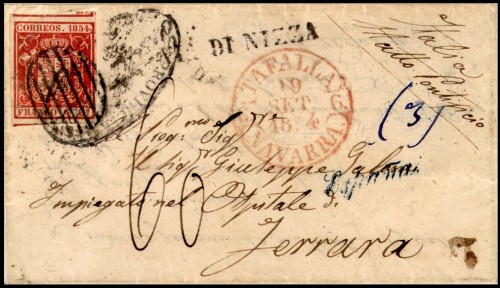 CORREOS. 1854.
FRANCO
DI NIZZA
TAFALLA
19
SET
1854
NAVARRA
Italia
Stato Pontificio
(3)
Preg.mo Sig.re
Il Sig.r Giuseppe
España
Impiegato nel Ospitale di
Ferrara